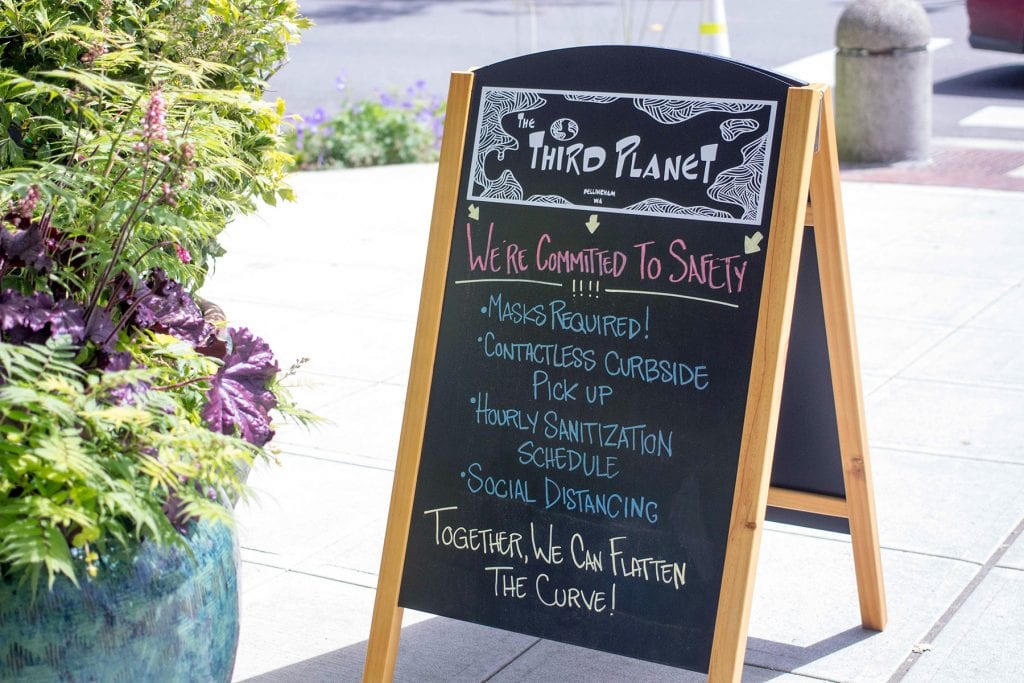 THE
THIRD PLANET
BELLINGHAM
WA
WE'RE COMMITTED TO SAFETY
!!!!
• MASKS REQUIRED!
• CONTACTLESS CURBSIDE
PICK UP
• HOURLY SANITIZATION
SCHEDULE
• SOCIAL DISTANCING
TOGETHER, WE CAN FLATTEN
THE CURVE!